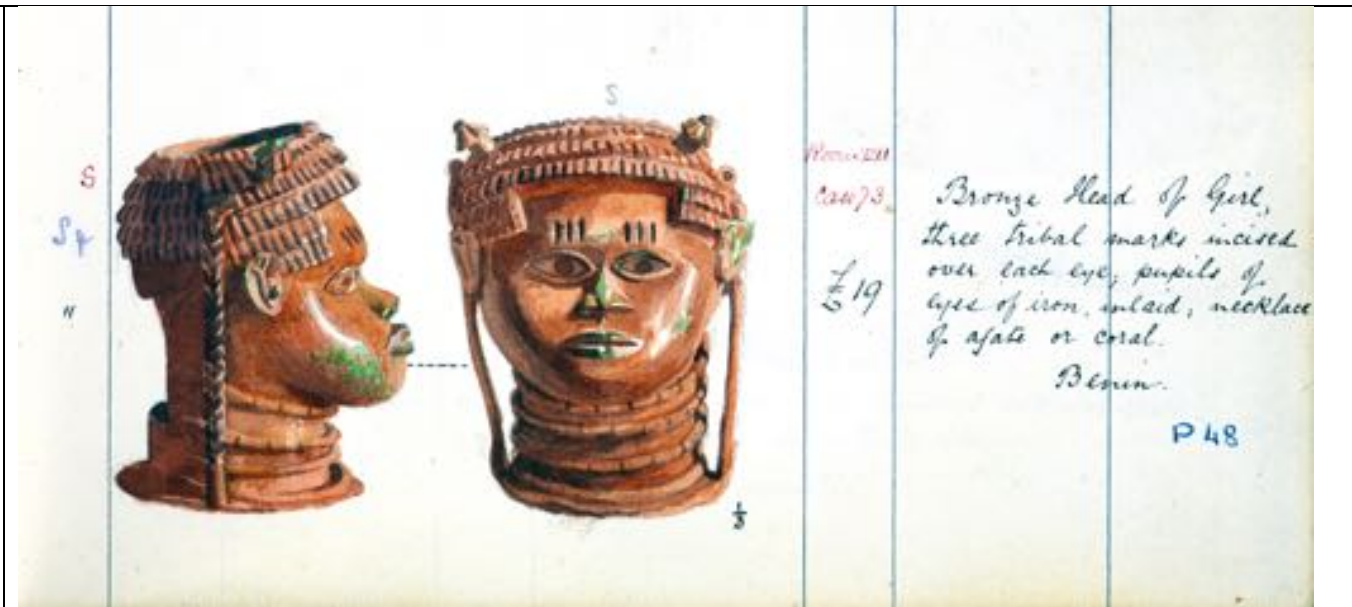 S
S
"
S
1/3
Case 73
£19
Bronze Head of Girl,
three tribal marks incised
over each eye, pupils of
eyes of iron, inlaid; necklace
of agate or coral.
Benin.
P 48